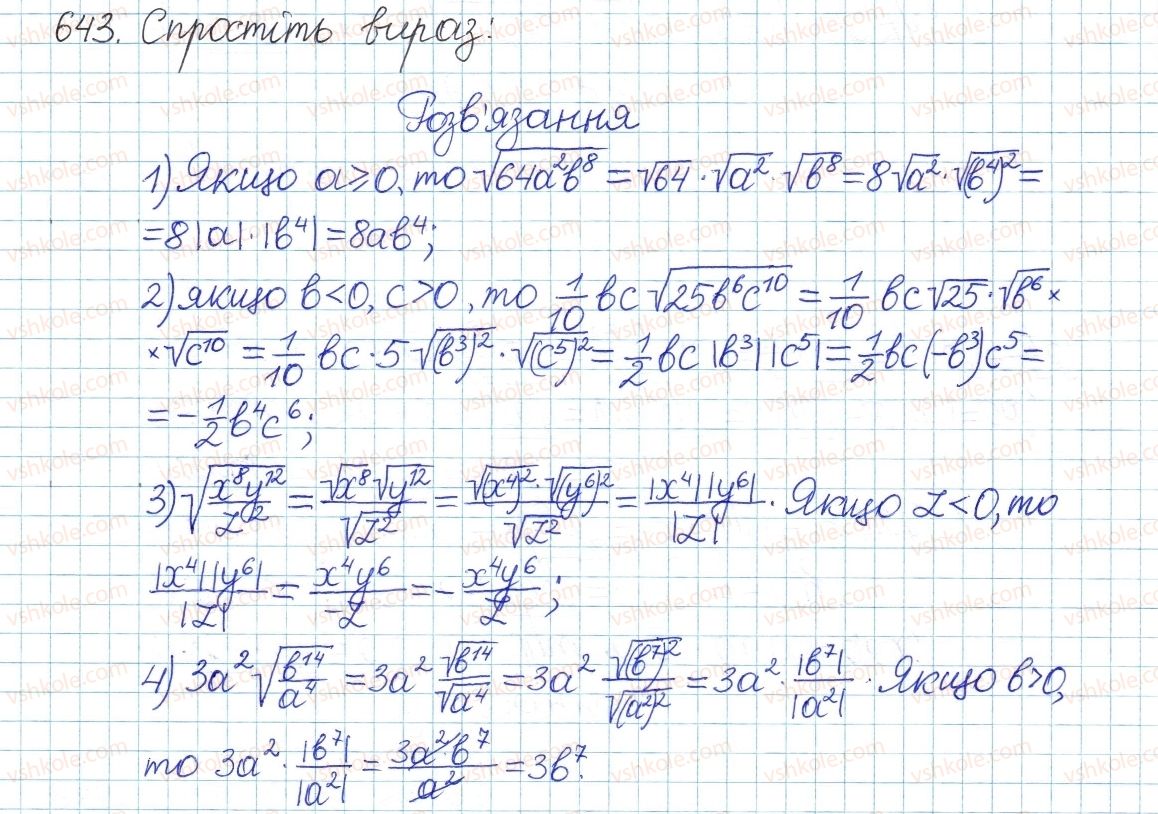 643. Спростіть вираз:
Розв'язання
1) Якщо a≥0, то √(64a²b⁸) = √64 · √(a²) · √(b⁸) = 8√(a²) · √((b⁴)²) =
= 8|a|·|b⁴| = 8ab⁴;
2) якщо b<0, c>0, то 1/10 bc√(25b⁶c¹⁰) = 1/10 bc√25 · √(b⁶) ×
× √(c¹⁰) = 1/10 bc · 5√((b³)²) · √((c⁵)²) = 1/2 bc |b³| |c⁵| = 1/2 bc(-b³)c⁵ =
= -1/2 b⁴c⁶;
3) √(x⁸y¹²/z²) = √(x⁸)√(y¹²)/√(z²) = √((x⁴)²)·√((y⁶)²)/√(z²) = |x⁴||y⁶|/|z|. Якщо z<0, то
|x⁴||y⁶|/|z| = x⁴y⁶/-z = - x⁴y⁶/z;
4) 3a²√(b¹⁴/a⁴) = 3a² √(b¹⁴)/√(a⁴) = 3a² √((b⁷)²)/√((a²)²) = 3a² · |b⁷|/|a²|. Якщо b>0,
то 3a² · |b⁷|/|a²| = 3a²·b⁷/a² = 3b⁷.
vshkole.com